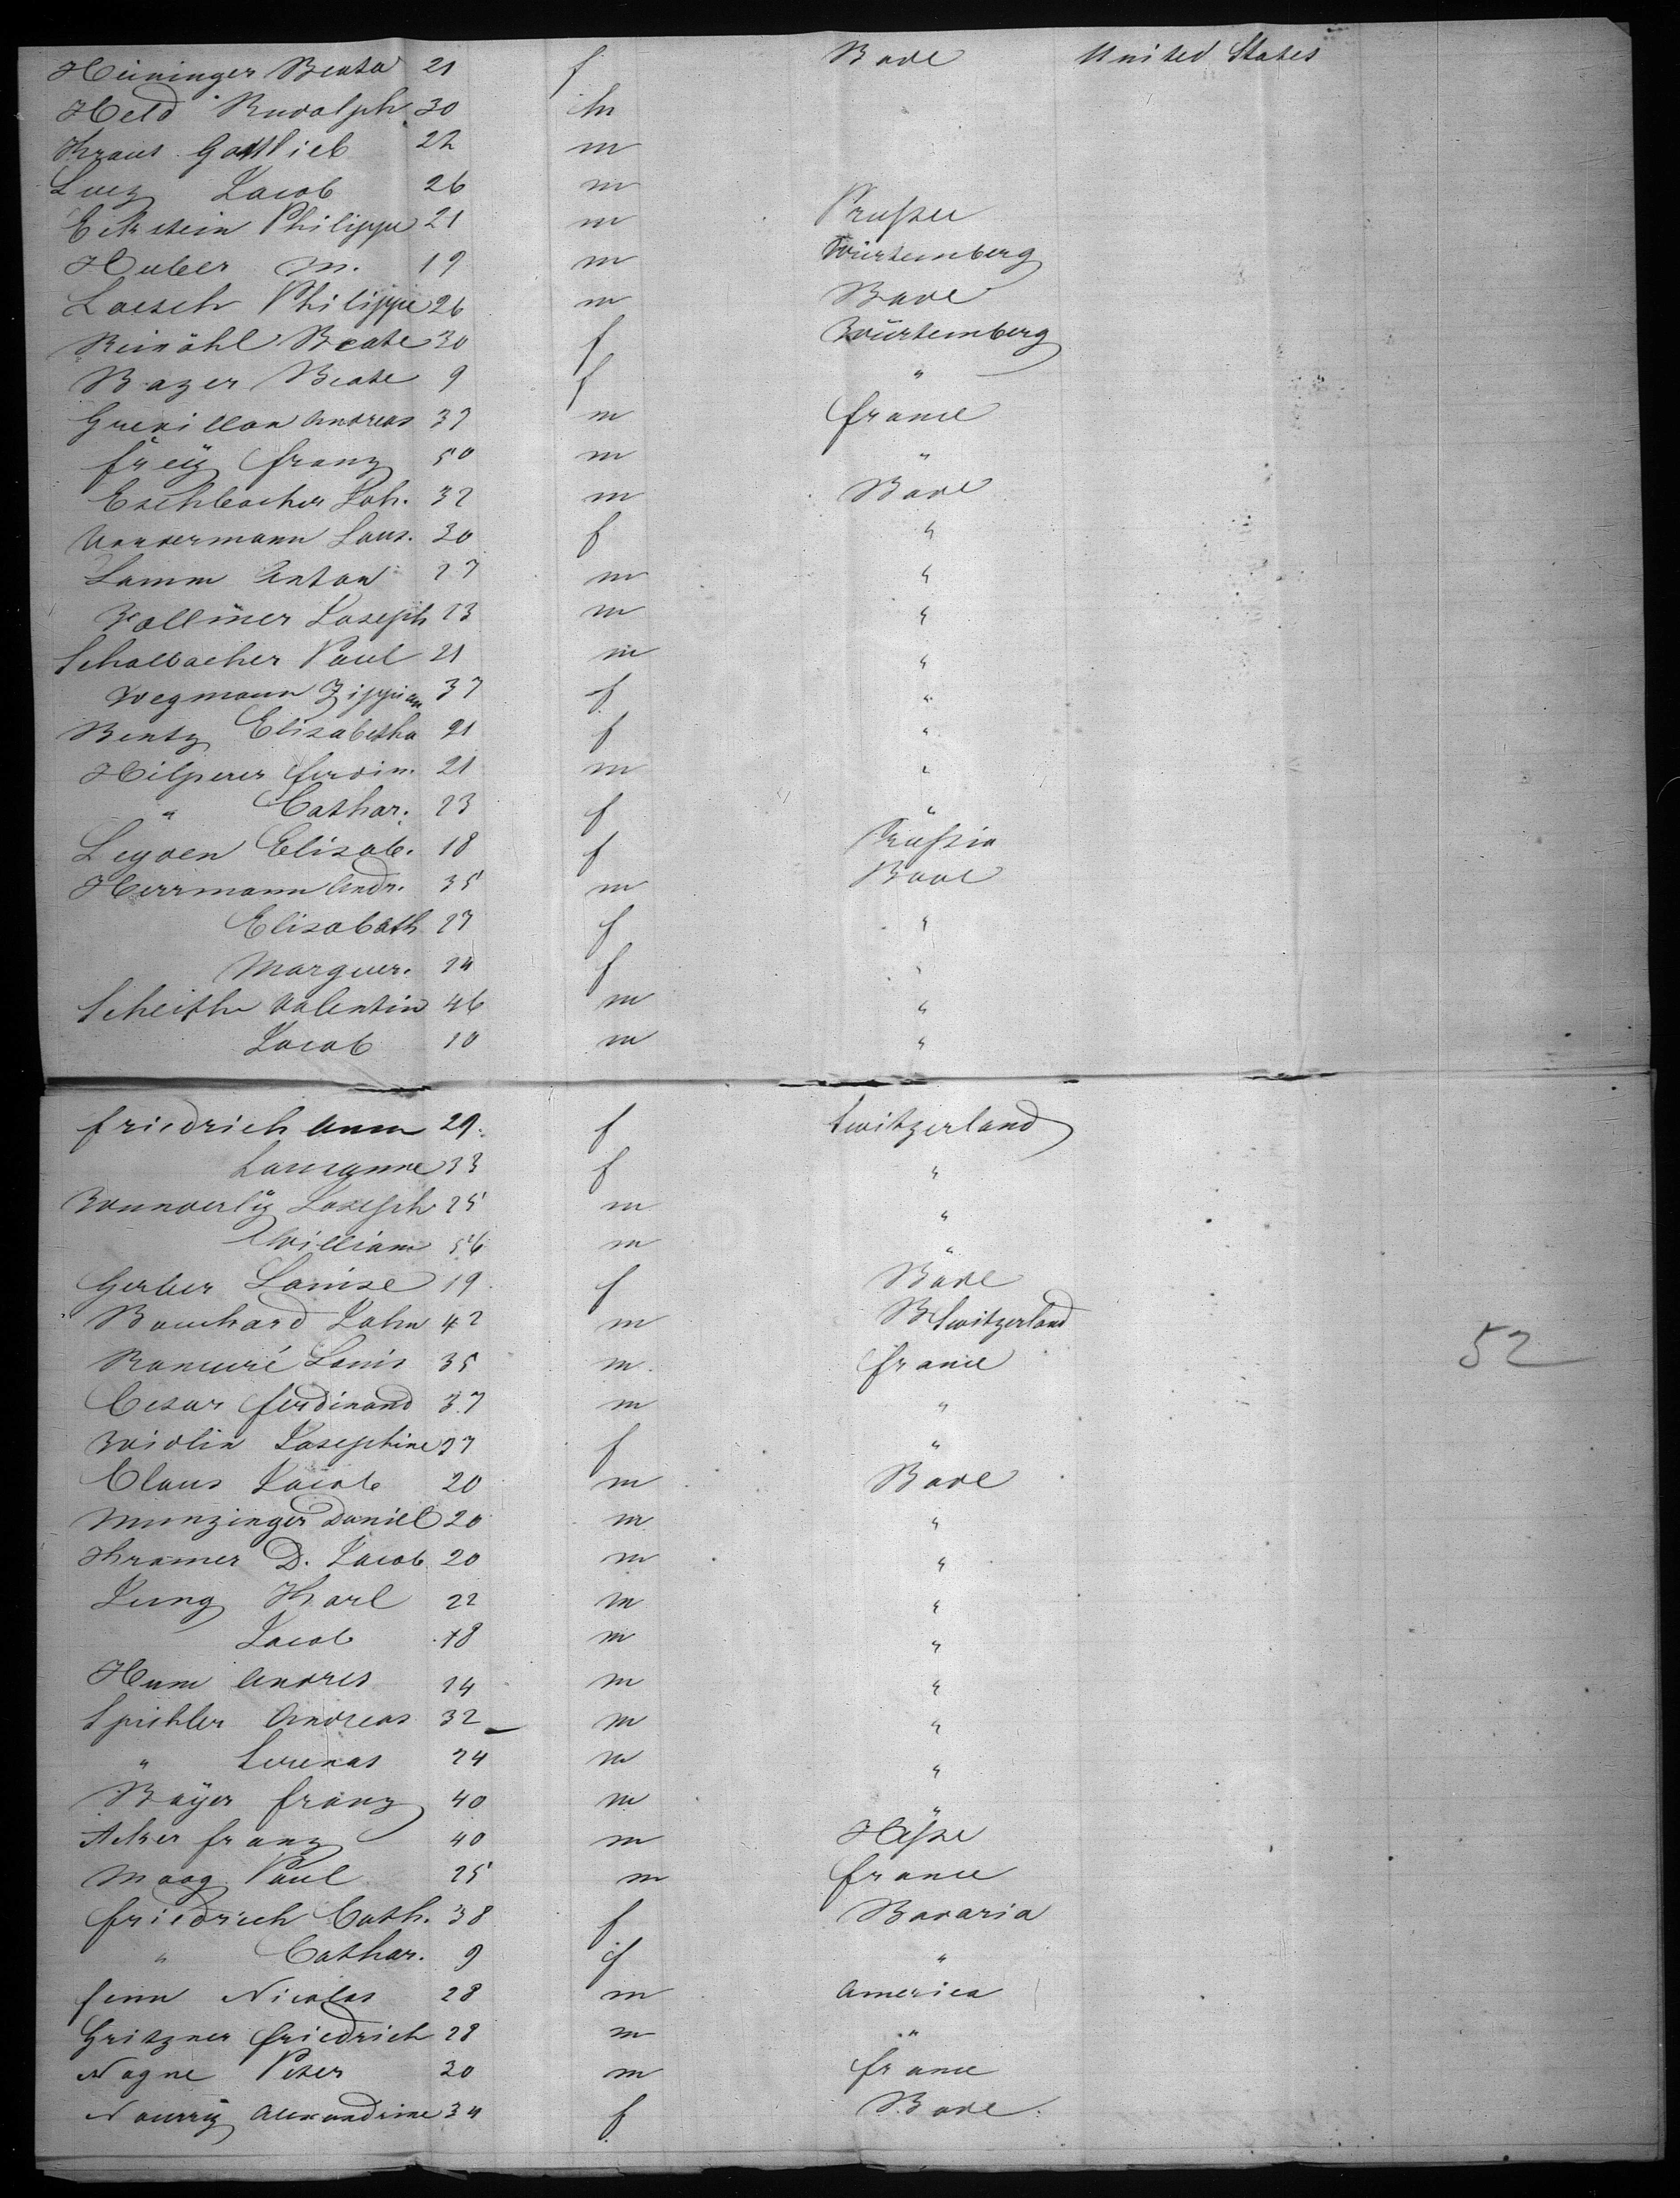 Heininger Beata 21 f Bade United States
Held Rudolph 30 m
Kraus Gottlieb 22 m
Lutz Jacob 26 m
Eckstein Philippe 21 m Prussee
Huber M. 19 m Würtemberg
Loesch Philippe 26 m Bade
Reinöhl Beate 30 f Würtemberg
Bazer Beate 9 f "
Andreas 37 m france
freÿ franz 50 m "
Eschbacher Joh. 32 m Bade
30 f "
Lamm Anton 27 m "
Vollmer Joseph 23 m "
Schalbacher Paul 21 m "
Wegmann 37 f "
Bentz Elisabetha 21 f "
Hilperer ferdin. 21 m "
" Cathar. 23 f "
Elisab. 18 f Prussia
Herrmann Andr. 35 m Bade
Elisabeth 27 f "
Marguer. 24 f "
Valentin 46 m "
Jacob 10 m "
friedrich Anna 29 f Switzerland
33 f "
Wunderlÿ Joseph 25 m "
William 56 m "
Gerber Louise 19 f Bade
Bouchard John 42 m B Switzerland
Louis 35 m france
52
Cesar ferdinand 37 m "
Widlin Josephine 27 f "
Claus Jacob 20 m Bade
Munzinger Daniel 20 m "
Kramer D. Jacob 20 m "
Jung Karl 22 m "
Jacob 18 m "
Andres 24 m "
Andreas 32 m "
" 24 m "
Bayer franz 40 m "
Acker franz 40 m Hesse
Moog Paul 25 m france
friedrich Cath. 38 f Bavaria
" Cathar. 9 f "
fenn Nicolas 28 m America
Gritzner friedrich 28 m "
Nagne Peter 30 m france
Alexandrine 34 f Bade.